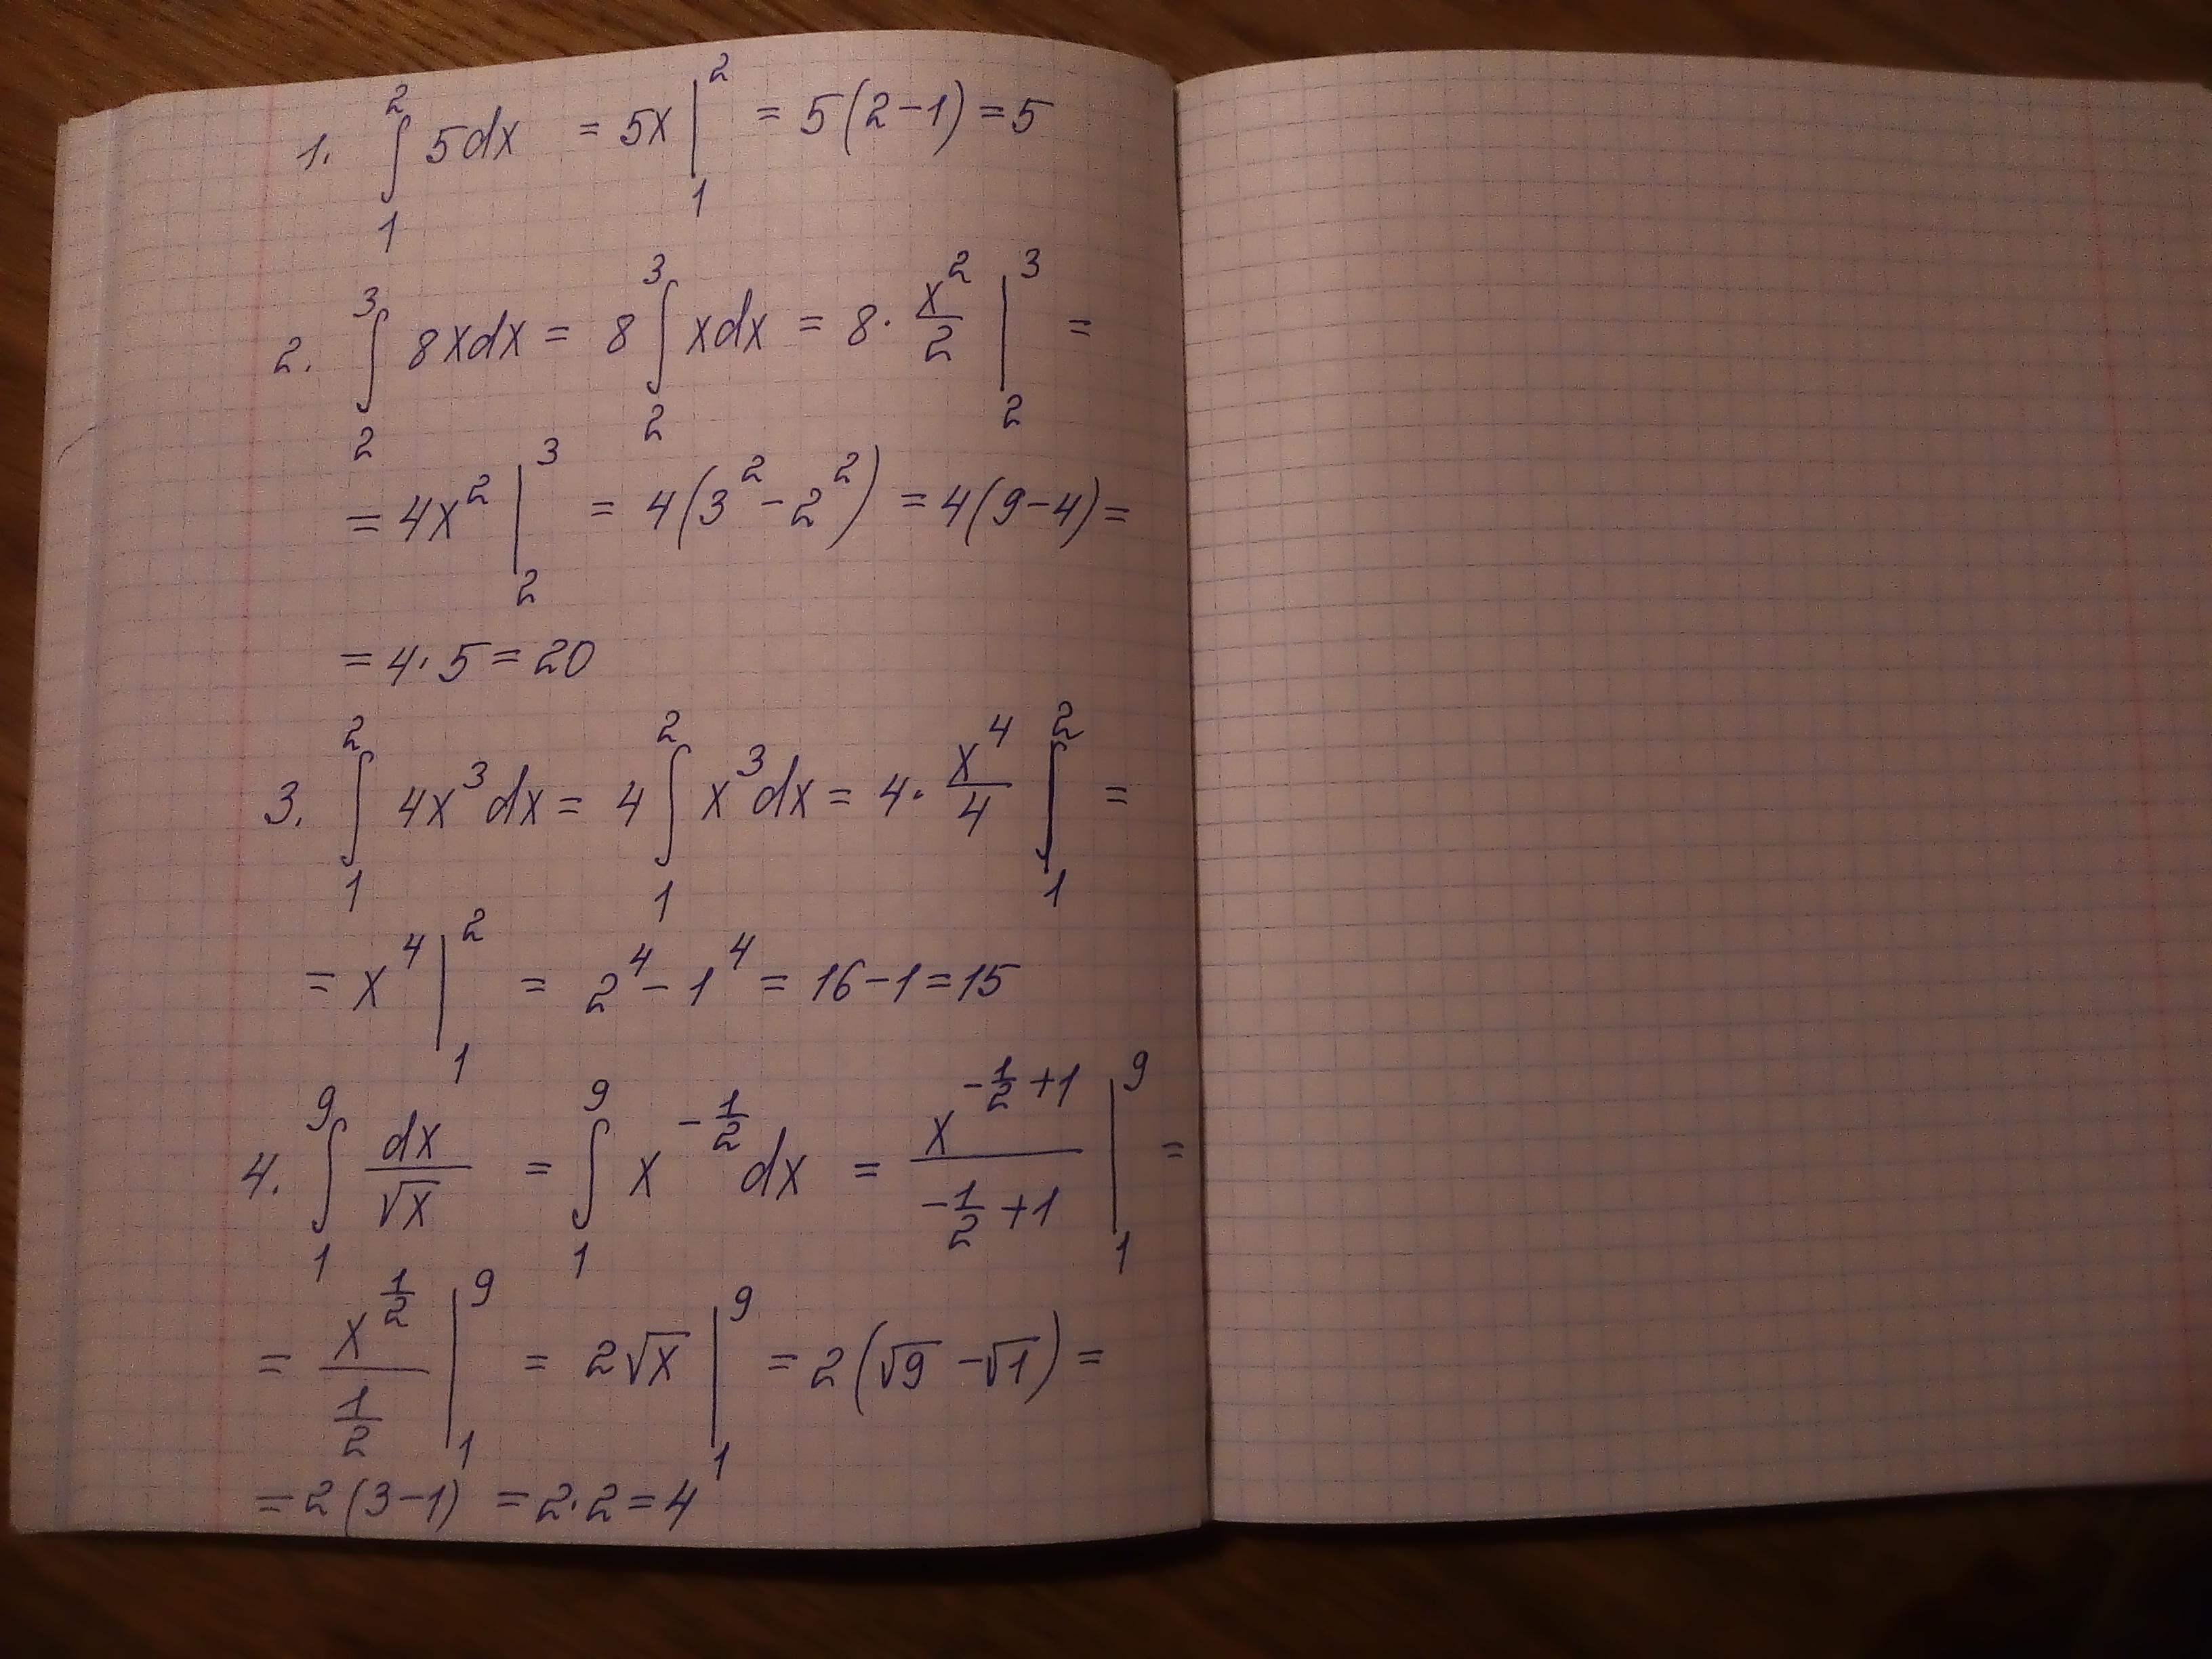 1. ∫₁² 5dx = 5x |₁² = 5(2-1) = 5
2. ∫₂³ 8xdx = 8 ∫₂³ xdx = 8 · x²/2 |₂³ =
= 4x² |₂³ = 4(3² - 2²) = 4(9-4) =
= 4 · 5 = 20
3. ∫₁² 4x³dx = 4 ∫₁² x³dx = 4 · x⁴/4 |₁² =
= x⁴ |₁² = 2⁴ - 1⁴ = 16 - 1 = 15
4. ∫₁⁹ dx/√x = ∫₁⁹ x^(-1/2) dx = x^(-1/2 + 1)/(-1/2 + 1) |₁⁹ =
= x^(1/2)/(1/2) |₁⁹ = 2√x |₁⁹ = 2(√9 - √1) =
= 2(3-1) = 2·2 = 4